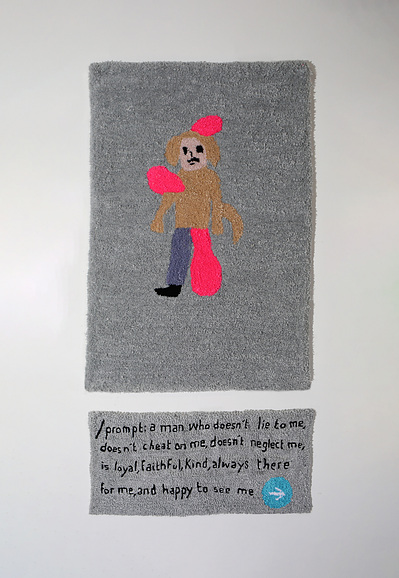 /prompt: a man who doesn't lie to me,
doesn't cheat on me, doesn't neglect me,
is loyal, faithful, kind, always there
for me, and happy to see me